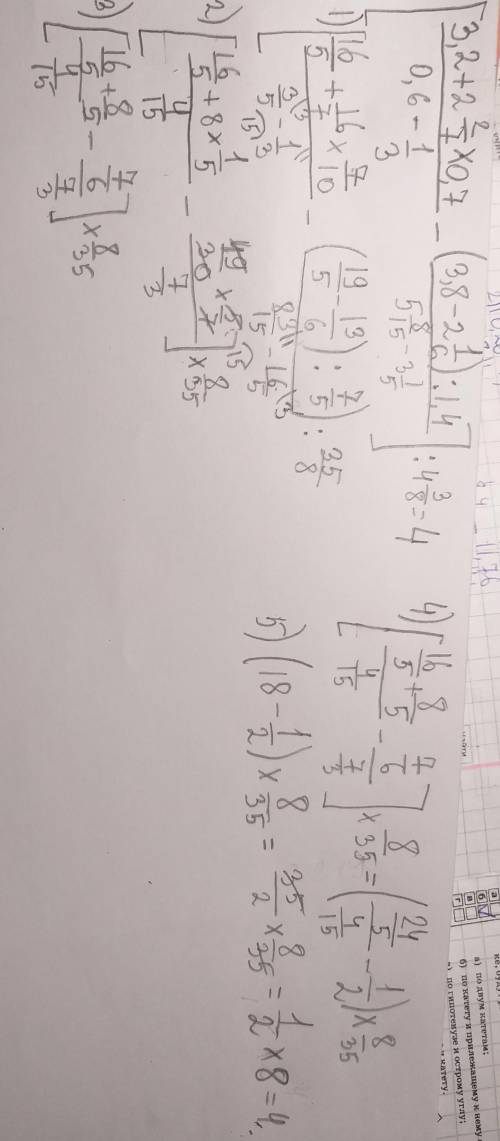 [(3,2+2 2/7×0,7)/(0,6-1/3) - (3,8-2 1/6):1,4/(5 8/15-3 1/5)]:4 3/8=4
1) [(16/5+16/7×7/10)/(3/5-1/3) - (19/5-13/6):7/5/(83/15-16/5)]:35/8
2) [(16/5+8×1/5)/(4/15) - (49/30×5/7)/(7/3)]×8/35
3) [(16/5+8/5)/(4/15) - (7/6)/(7/3)]×8/35
4) [(16/5+8/5)/(4/15) - (7/6)/(7/3)]×8/35=((24/5)/(4/15)-1/2)×8/35
5) (18-1/2)×8/35=35/2×8/35=1/2×8=4.
а) по двум катетам;
б) по катету и прилежащему к нему